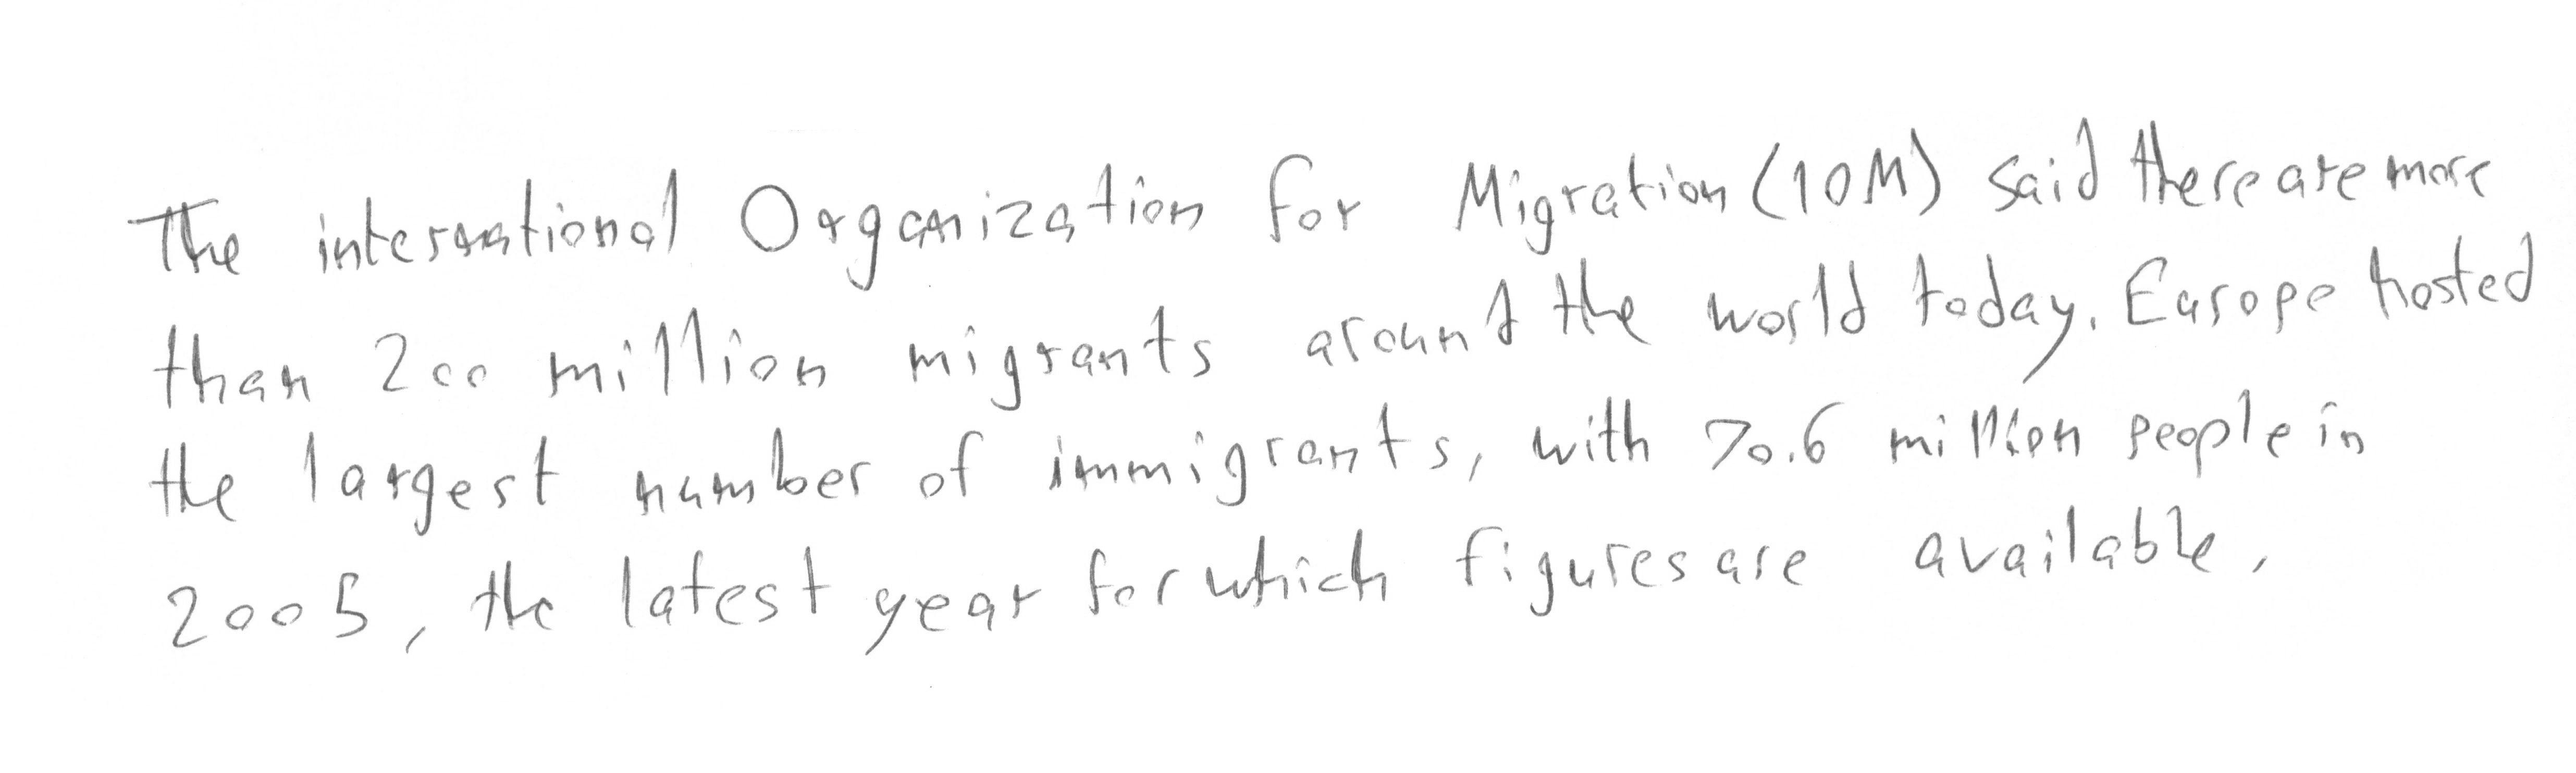 The international Organization for Migration (IOM) said there are more
than 200 million migrants around the world today. Europe hosted
the largest number of immigrants, with 70.6 million people in
2005, the latest year for which figures are available.